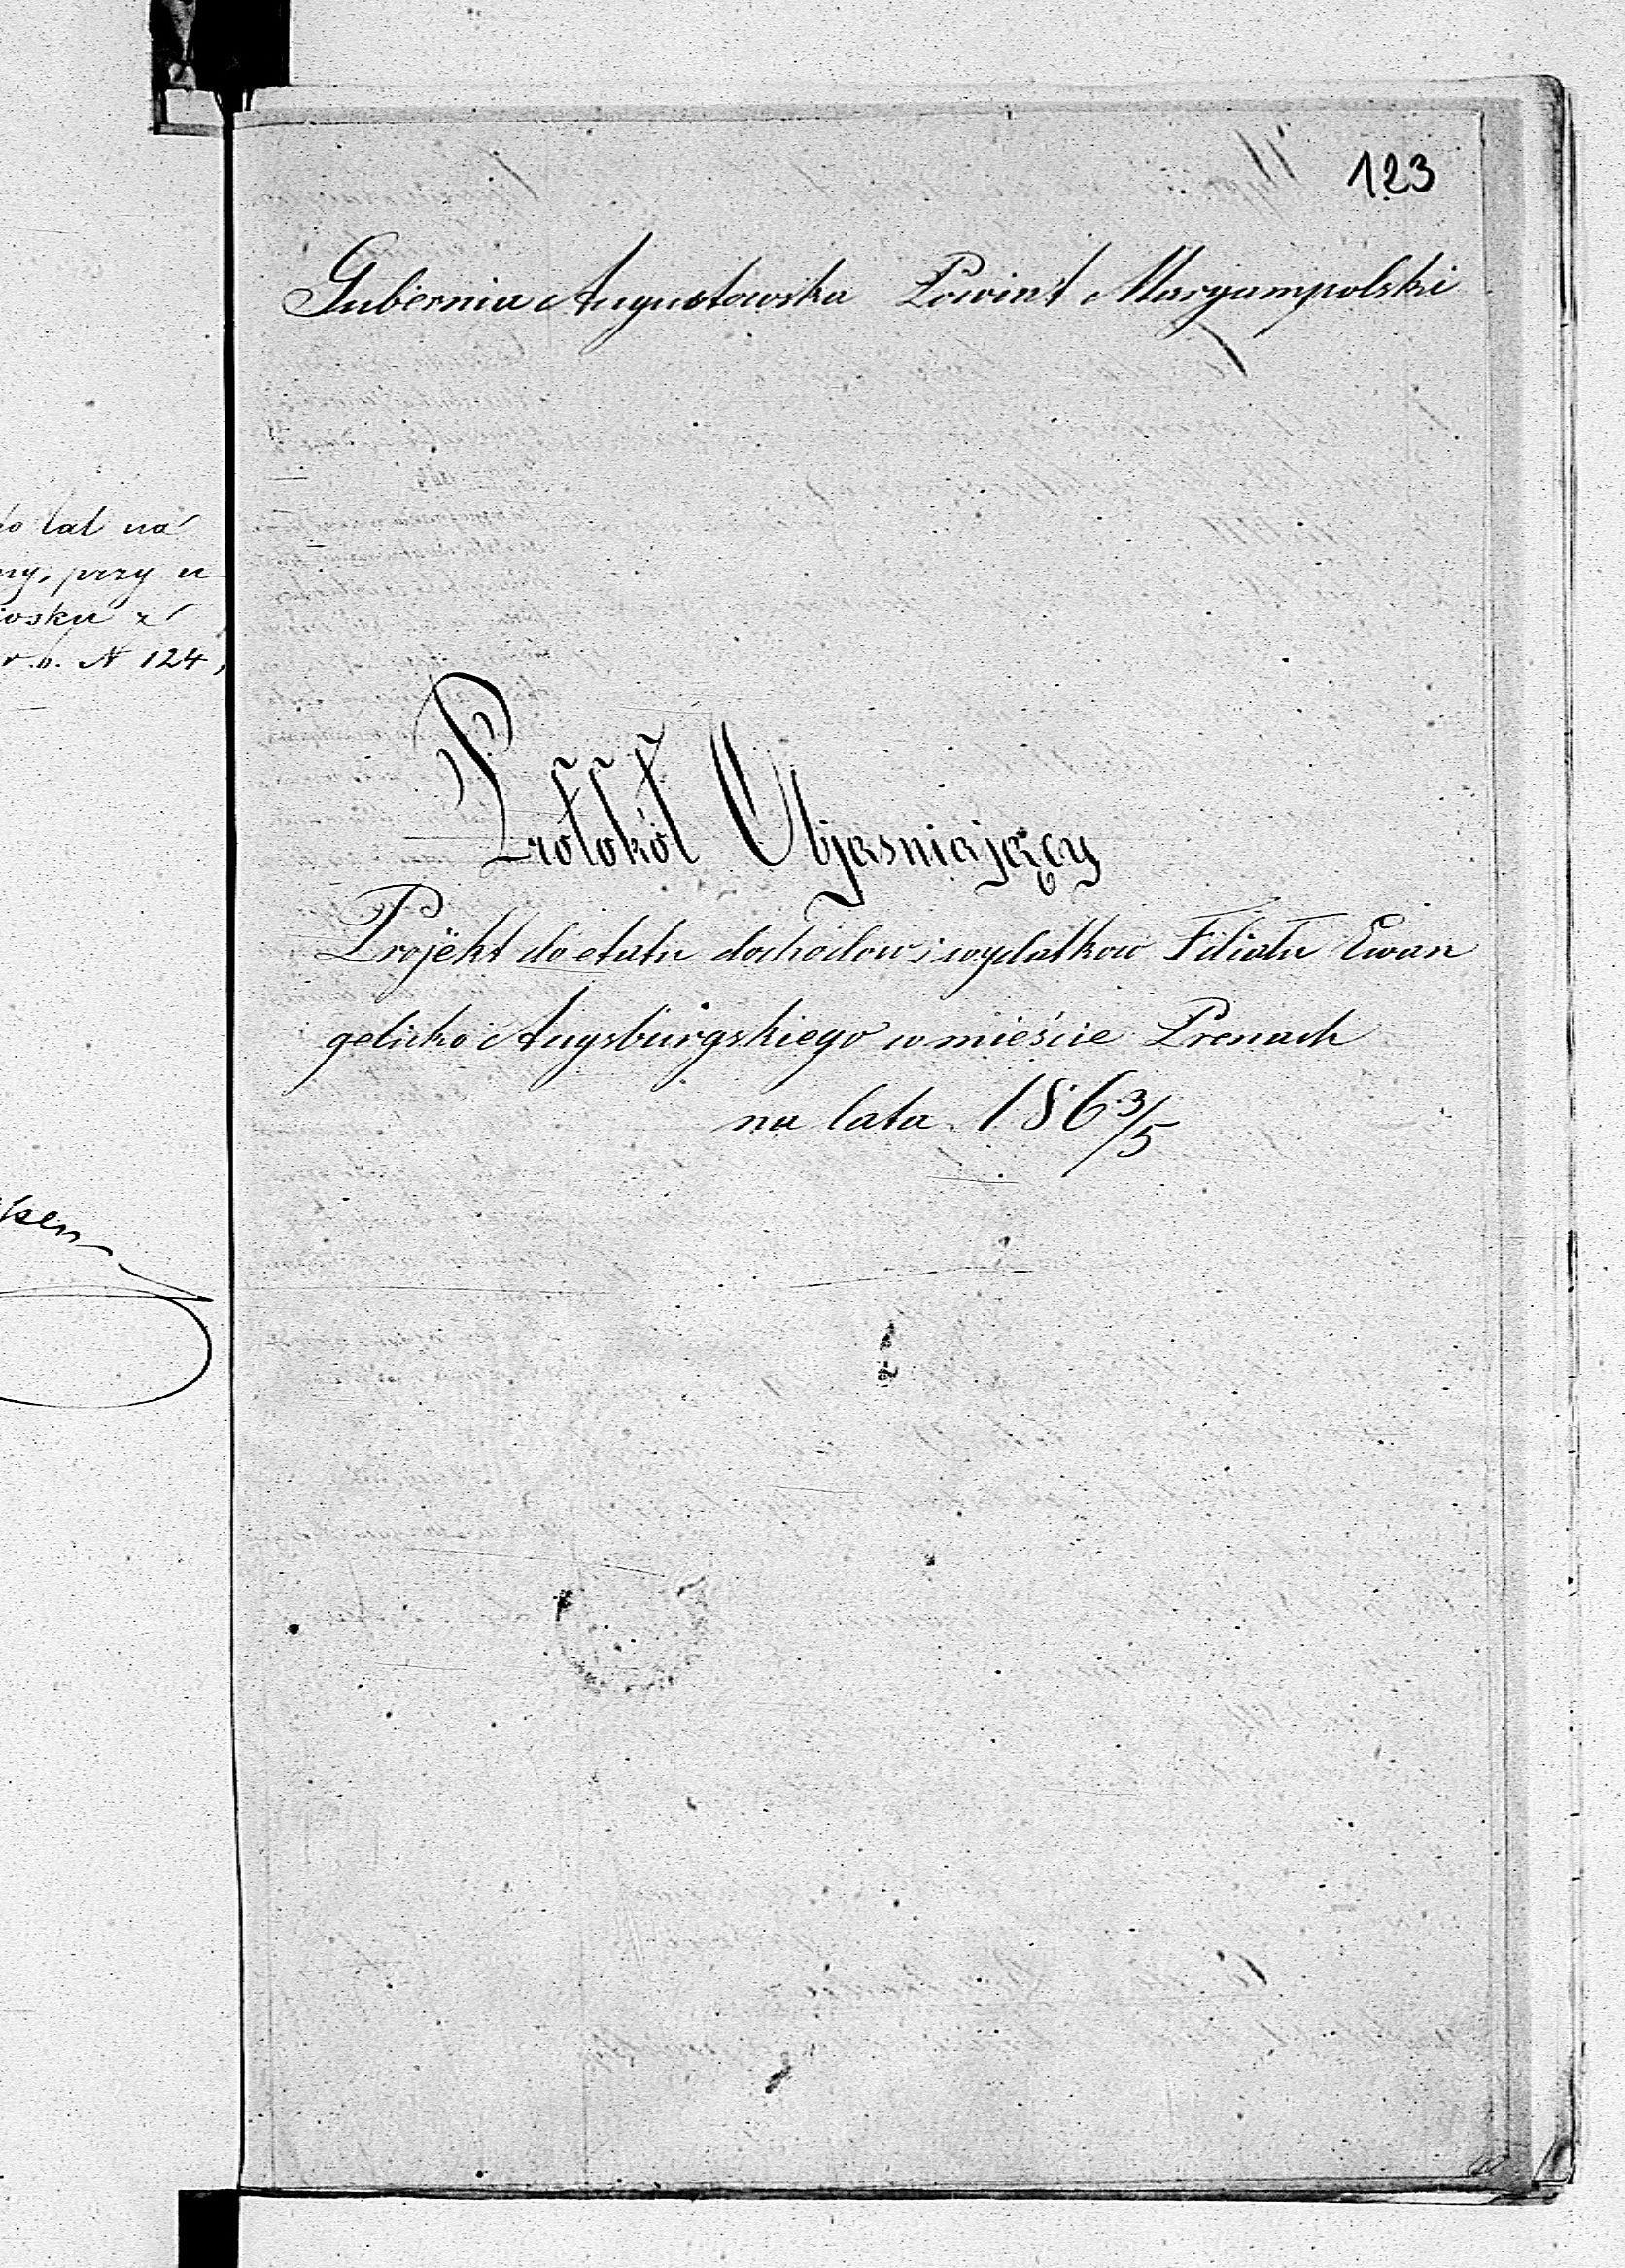 123
Gubernia Augustowska Powiat Maryampolski
Protokół Objasniający
Projekt do etatu dochodow i wydatkow Filiału Ewan
gelicko Augsburgskiego w mieście Prenach
na lata 186 3/5
lat na
przy u
z
N 124,